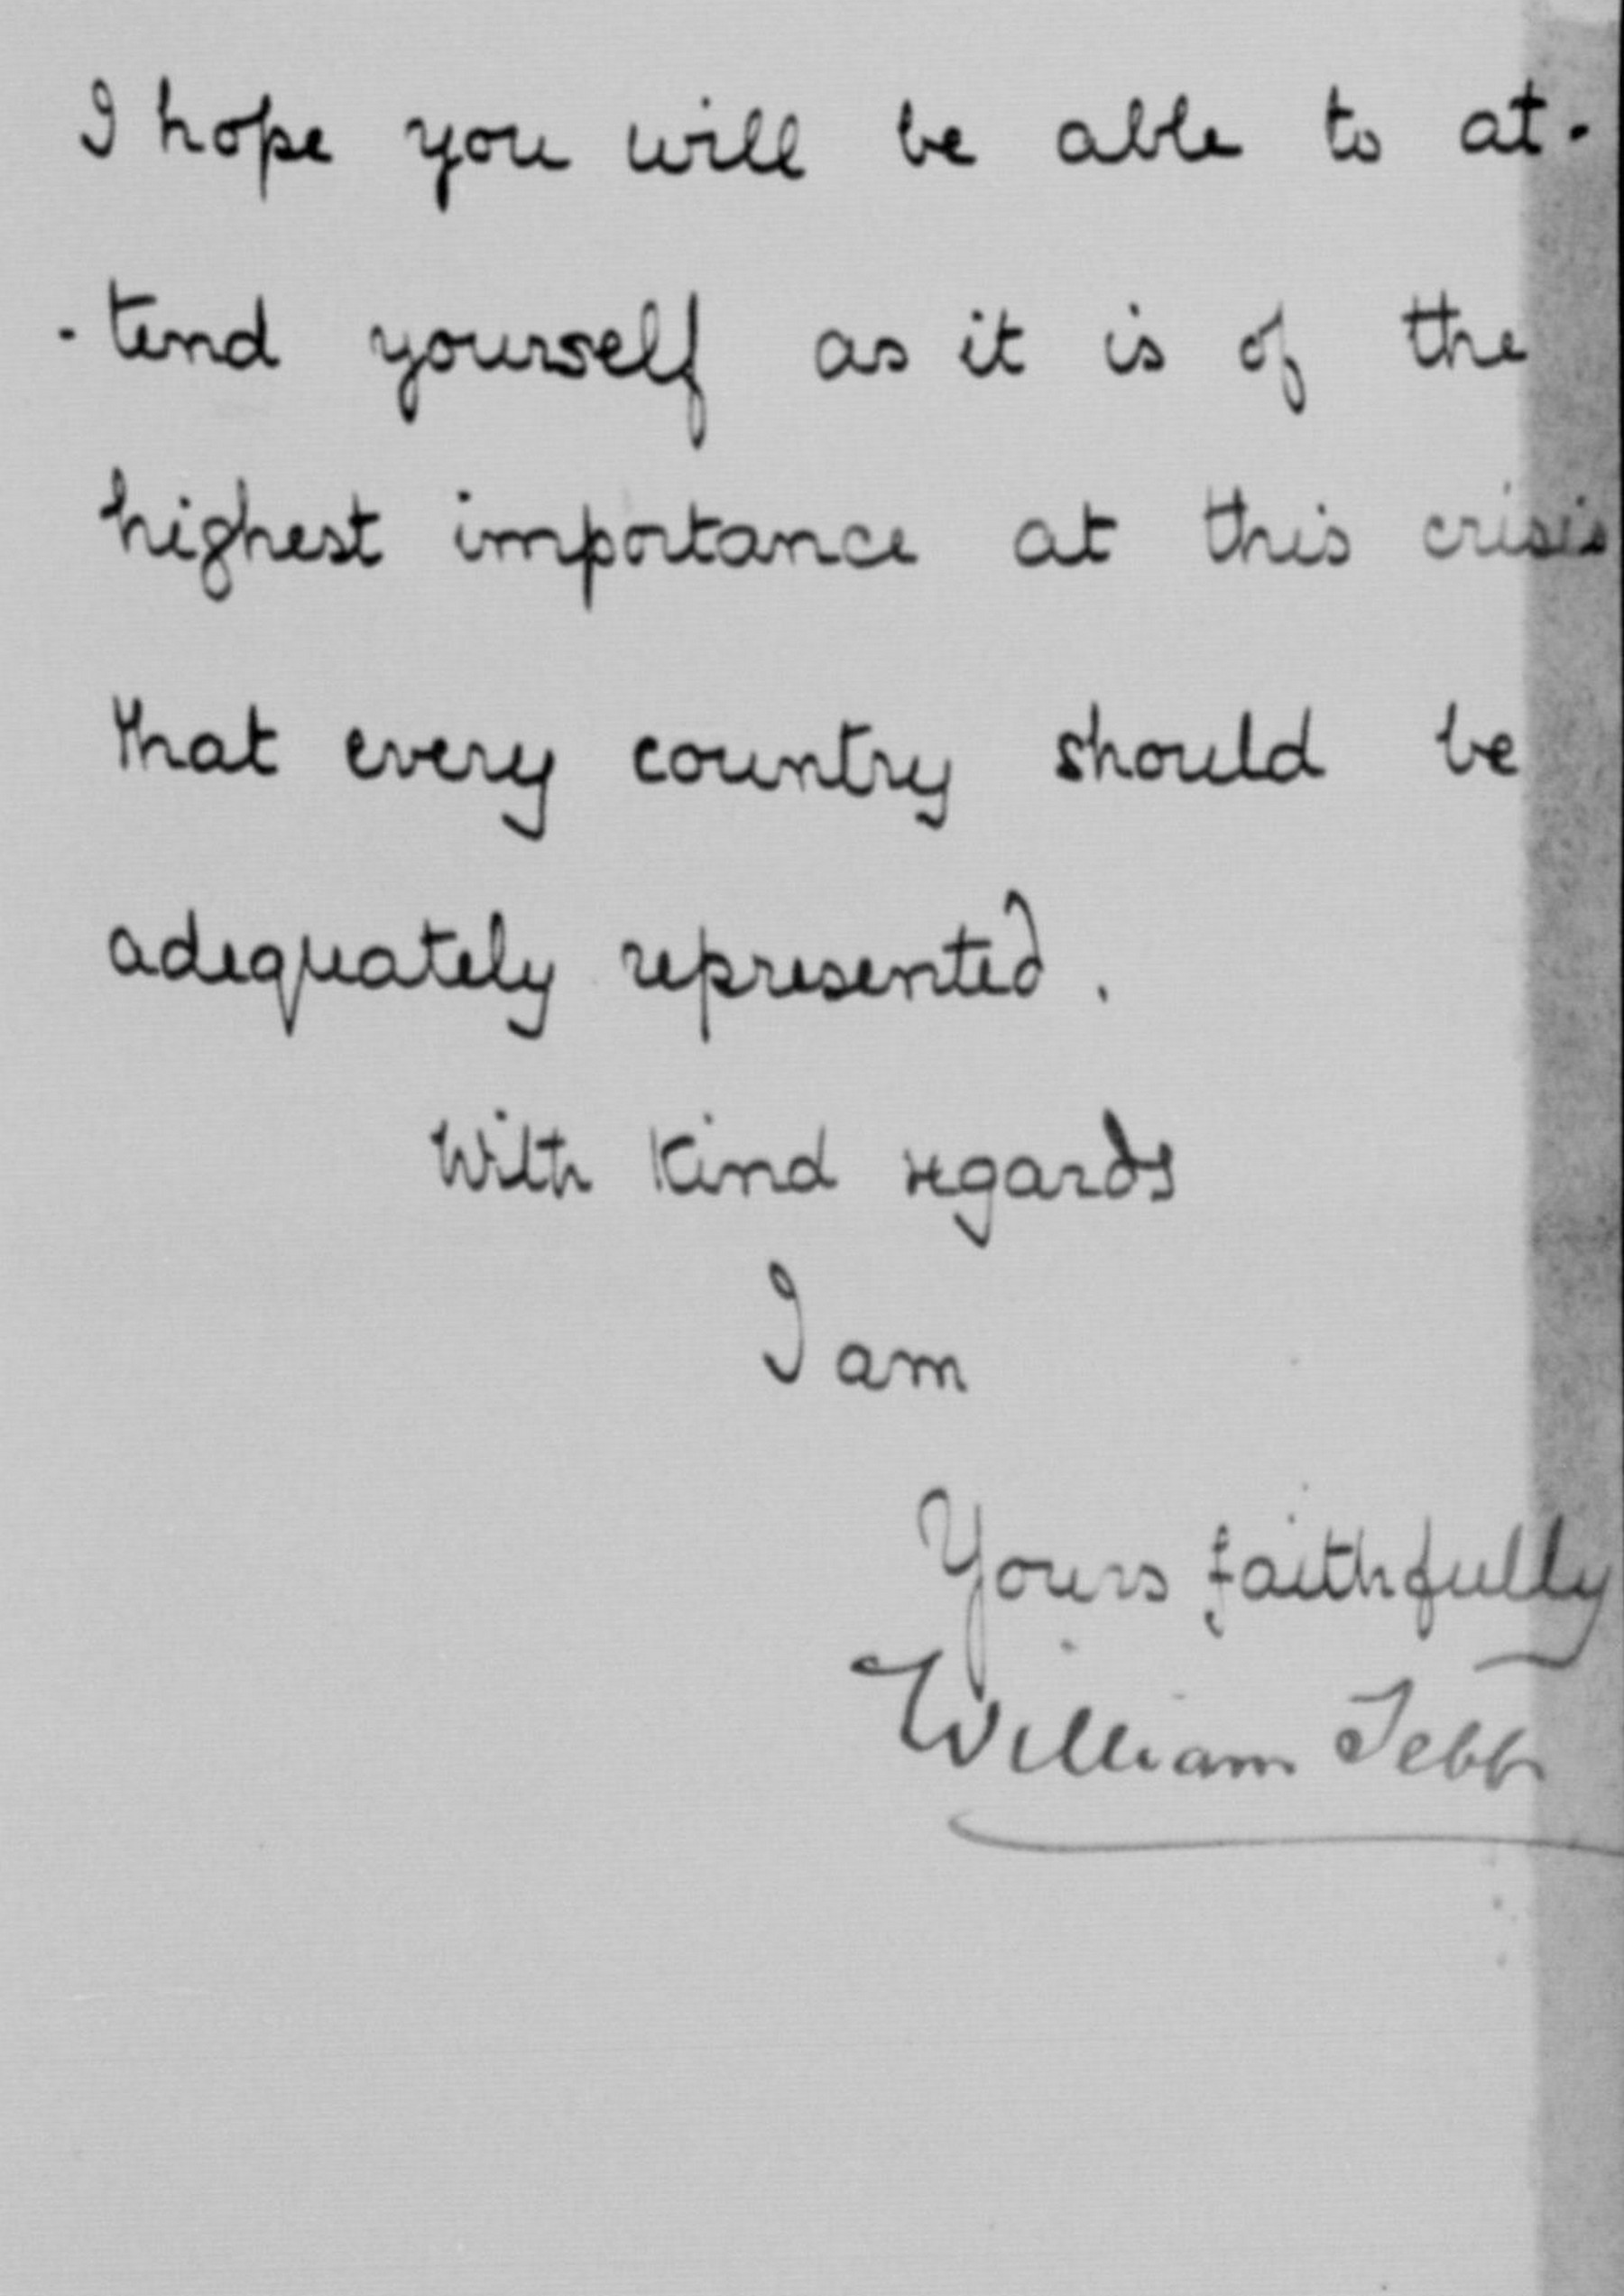 I hope you will be able to at-
-tend yourself as it is of the
highest importance at this crisis
that every country should be
adequately represented.
With kind regards
I am
Yours faithfully
William Tebb